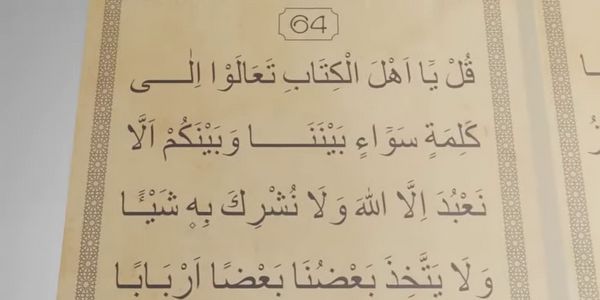 64
قُلْ يَٓا اَهْلَ الْكِتَابِ تَعَالَوْا اِلٰى
كَلِمَةٍ سَوَٓاءٍ بَيْنَنَا وَبَيْنَكُمْ اَلَّا
نَعْبُدَ اِلَّا اللهَ وَلَا نُشْرِكَ بِهٖ شَيْـًٔا
وَلَا يَتَّخِذَ بَعْضُنَا بَعْضًا اَرْبَابًا